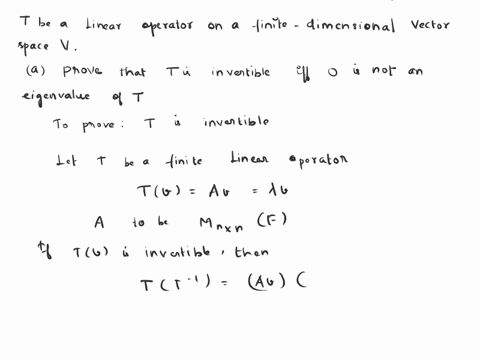 T be a Linear operator on a finite-dimensional vector
space V.
(a) prove that T is invertible iff 0 is not an
eigenvalue of T
To prove: T is invertible
Let T be a finite Linear operator
T(v) = Av = λv
A to be Mₙₓₙ (F)
If T(v) is invertible, then
T(T⁻¹) = (Av) (